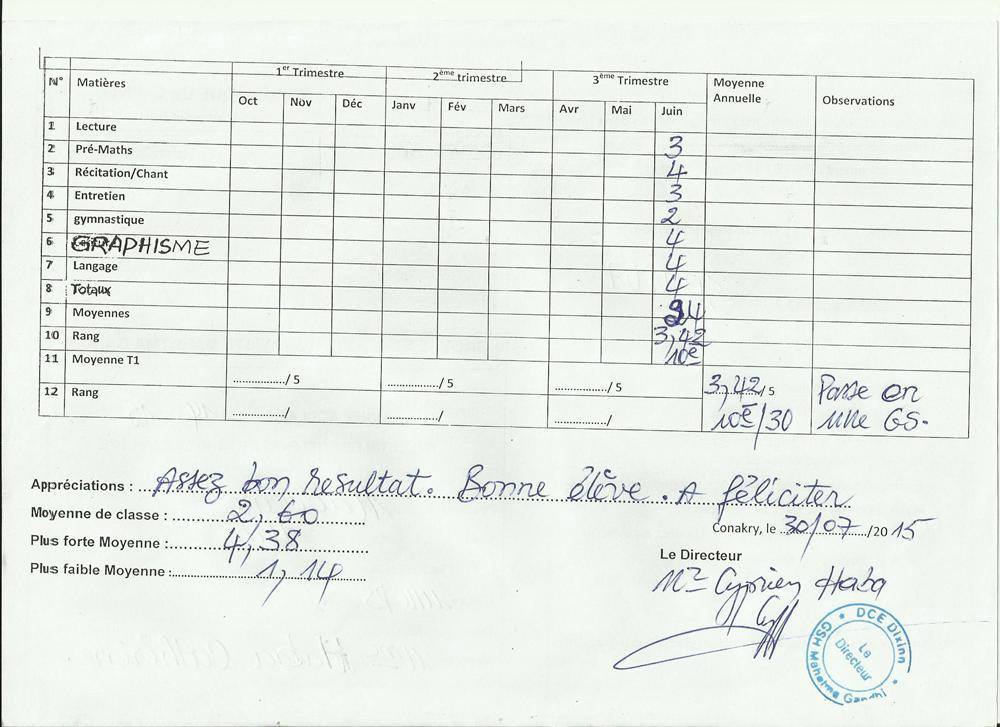 N° Matières 1er Trimestre 2ème trimestre 3ème Trimestre Moyenne Annuelle Observations
Oct Nov Déc Janv Fév Mars Avr Mai Juin
1 Lecture 3
2 Pré-Maths 4
3 Récitation/Chant 3
4 Entretien 2
5 gymnastique 4
6 GRAPHISME 4
7 Langage 4
8 Totaux 24
9 Moyennes 3,42
10 Rang 10e
11 Moyenne T1 ............../ 5 ............../ 5 ............../ 5 3,42/5 Passe en
12 Rang ............../ ............../ ............../ 10è/30 une GS.
Appréciations : Assez bon, Resultat. Bonne élève. A féliciter
Moyenne de classe : 2,60
Conakry, le 30/07/2015
Plus forte Moyenne : 4,38
Le Directeur
Plus faible Moyenne : 1,14
Mr Cyprien Haba
DCE Dixinn
Le Directeur
GSH Mahatma Gandhi